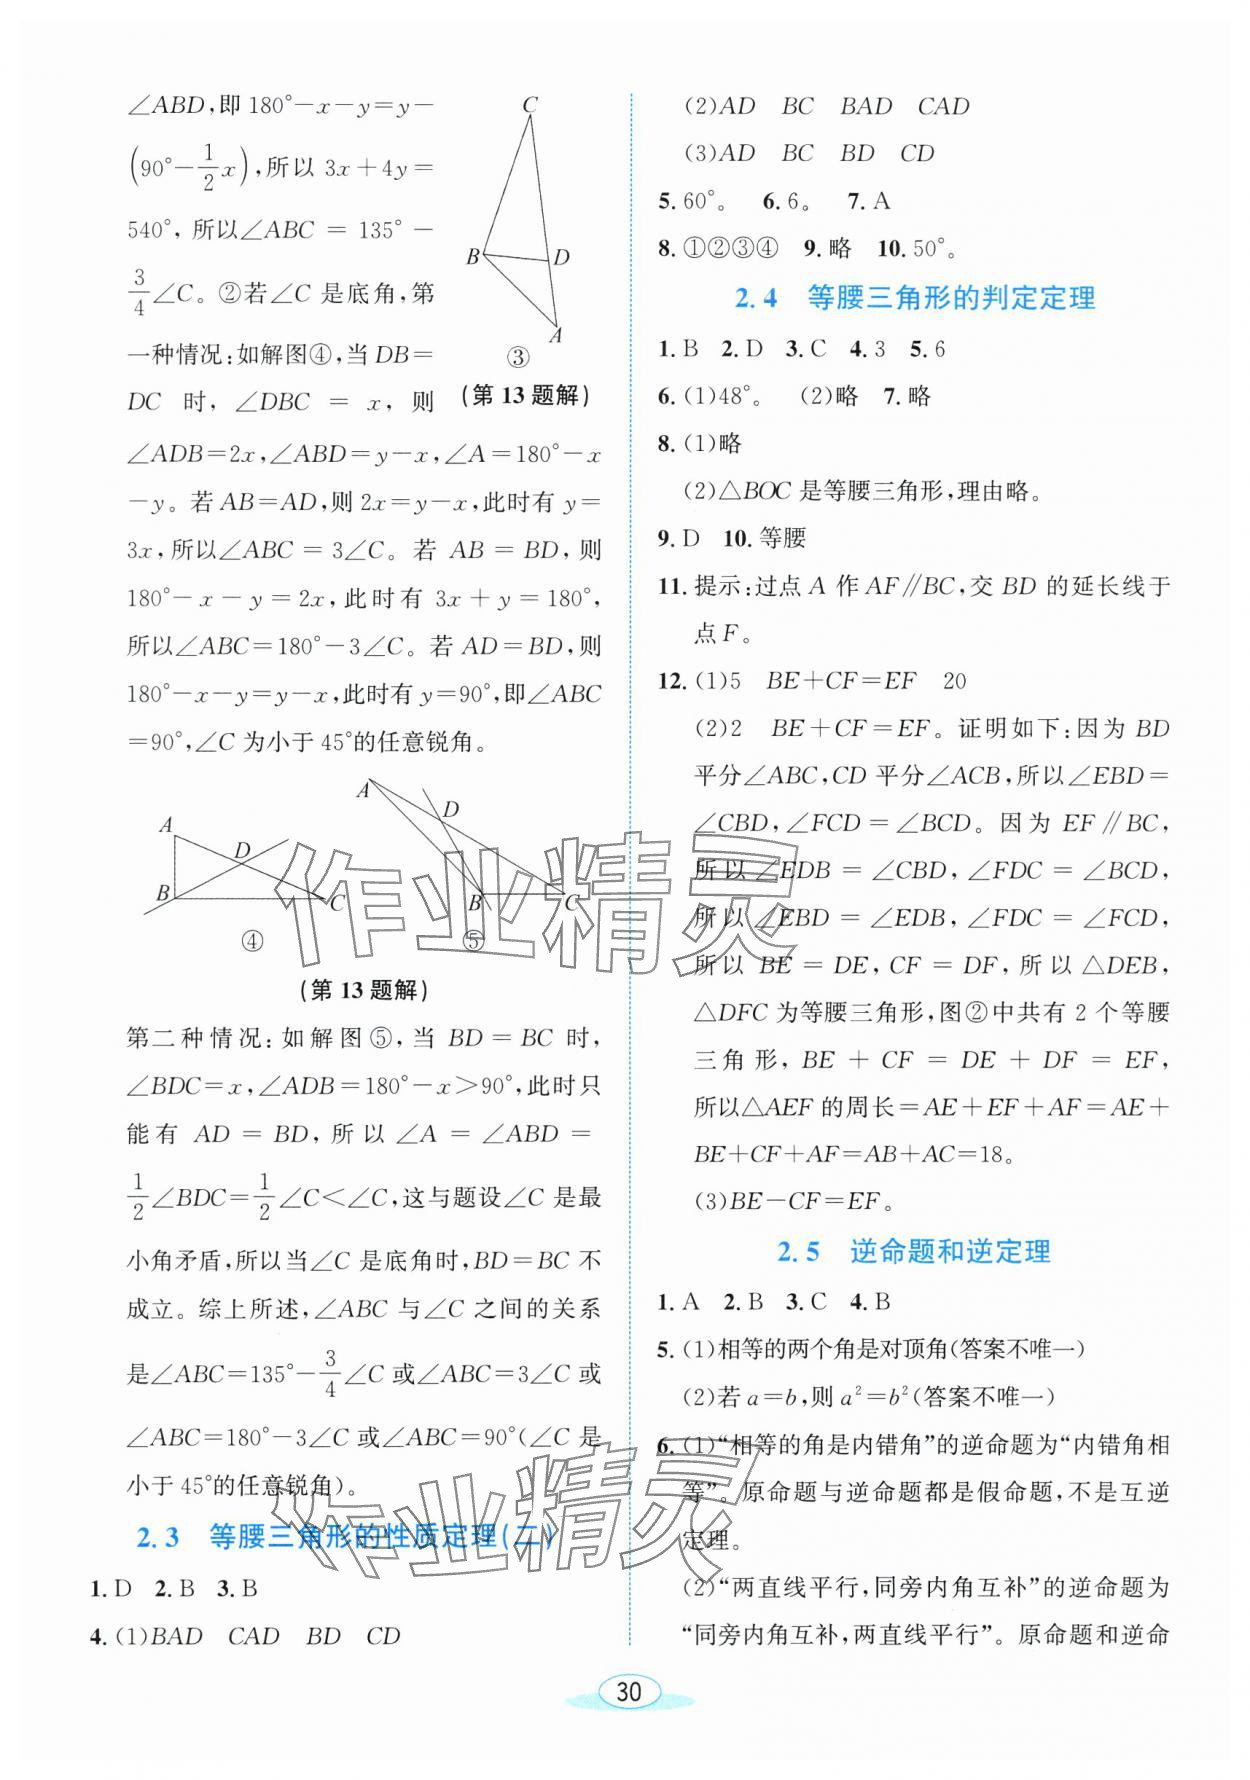 ∠ABD,即 180°－x－y＝y－
(90°－1/2x),所以 3x＋4y＝
540°,所以∠ABC ＝ 135°－
3/4∠C。②若∠C 是底角,第
一种情况:如解图④,当 DB＝
DC 时,∠DBC ＝ x,则
C
B
D
A
③
(第 13 题解)
∠ADB＝2x,∠ABD＝y－x,∠A＝180°－x
－y。若 AB＝AD,则 2x＝y－x,此时有 y＝
3x,所以∠ABC ＝ 3∠C。若 AB ＝ BD,则
180°－x－y＝2x,此时有 3x＋y＝180°,
所以∠ABC＝180°－3∠C。若 AD＝BD,则
180°－x－y＝y－x,此时有 y＝90°,即∠ABC
＝90°,∠C 为小于 45°的任意锐角。
A
D
B
C
④
A
D
B
C
⑤
(第 13 题解)
第二种情况:如解图⑤,当 BD＝BC 时,
∠BDC＝x,∠ADB＝180°－x＞90°,此时只
能有 AD ＝ BD,所以 ∠A ＝ ∠ABD ＝
1/2∠BDC＝1/2∠C＜∠C,这与题设∠C 是最
小角矛盾,所以当∠C 是底角时,BD＝BC 不
成立。综上所述,∠ABC 与∠C 之间的关系
是∠ABC＝135°－3/4∠C 或∠ABC＝3∠C 或
∠ABC＝180°－3∠C 或∠ABC＝90°(∠C 是
小于 45°的任意锐角)。
2.3 等腰三角形的性质定理(二)
1. D 2. B 3. B
4. (1)BAD CAD BD CD
(2)AD BC BAD CAD
(3)AD BC BD CD
5. 60°。 6. 6。 7. A
8. ①②③④ 9. 略 10. 50°。
2.4 等腰三角形的判定定理
1. B 2. D 3. C 4. 3 5. 6
6. (1)48°。 (2)略 7. 略
8. (1)略
(2)△BOC 是等腰三角形,理由略。
9. D 10. 等腰
11. 提示:过点 A 作 AF∥BC,交 BD 的延长线于
点 F。
12. (1)5 BE＋CF＝EF 20
(2)2 BE＋CF＝EF。证明如下:因为 BD
平分∠ABC,CD 平分∠ACB,所以∠EBD＝
∠CBD,∠FCD＝∠BCD。因为 EF∥BC,
所以 ∠EDB ＝ ∠CBD,∠FDC ＝ ∠BCD,
所以 ∠EBD ＝ ∠EDB,∠FDC ＝ ∠FCD,
所以 BE ＝ DE,CF ＝ DF,所以 △DEB,
△DFC 为等腰三角形,图②中共有 2 个等腰
三角形,BE ＋ CF ＝ DE ＋ DF ＝ EF,
所以△AEF 的周长＝AE＋EF＋AF＝AE＋
BE＋CF＋AF＝AB＋AC＝18。
(3)BE－CF＝EF。
2.5 逆命题和逆定理
1. A 2. B 3. C 4. B
5. (1)相等的两个角是对顶角(答案不唯一)
(2)若 a＝b,则 a²＝b²(答案不唯一)
6. (1)“相等的角是内错角”的逆命题为“内错角相
等”。原命题与逆命题都是假命题,不是互逆
定理。
(2)“两直线平行,同旁内角互补”的逆命题为
“同旁内角互补,两直线平行”。原命题和逆命
30
作业精灵
作业精灵